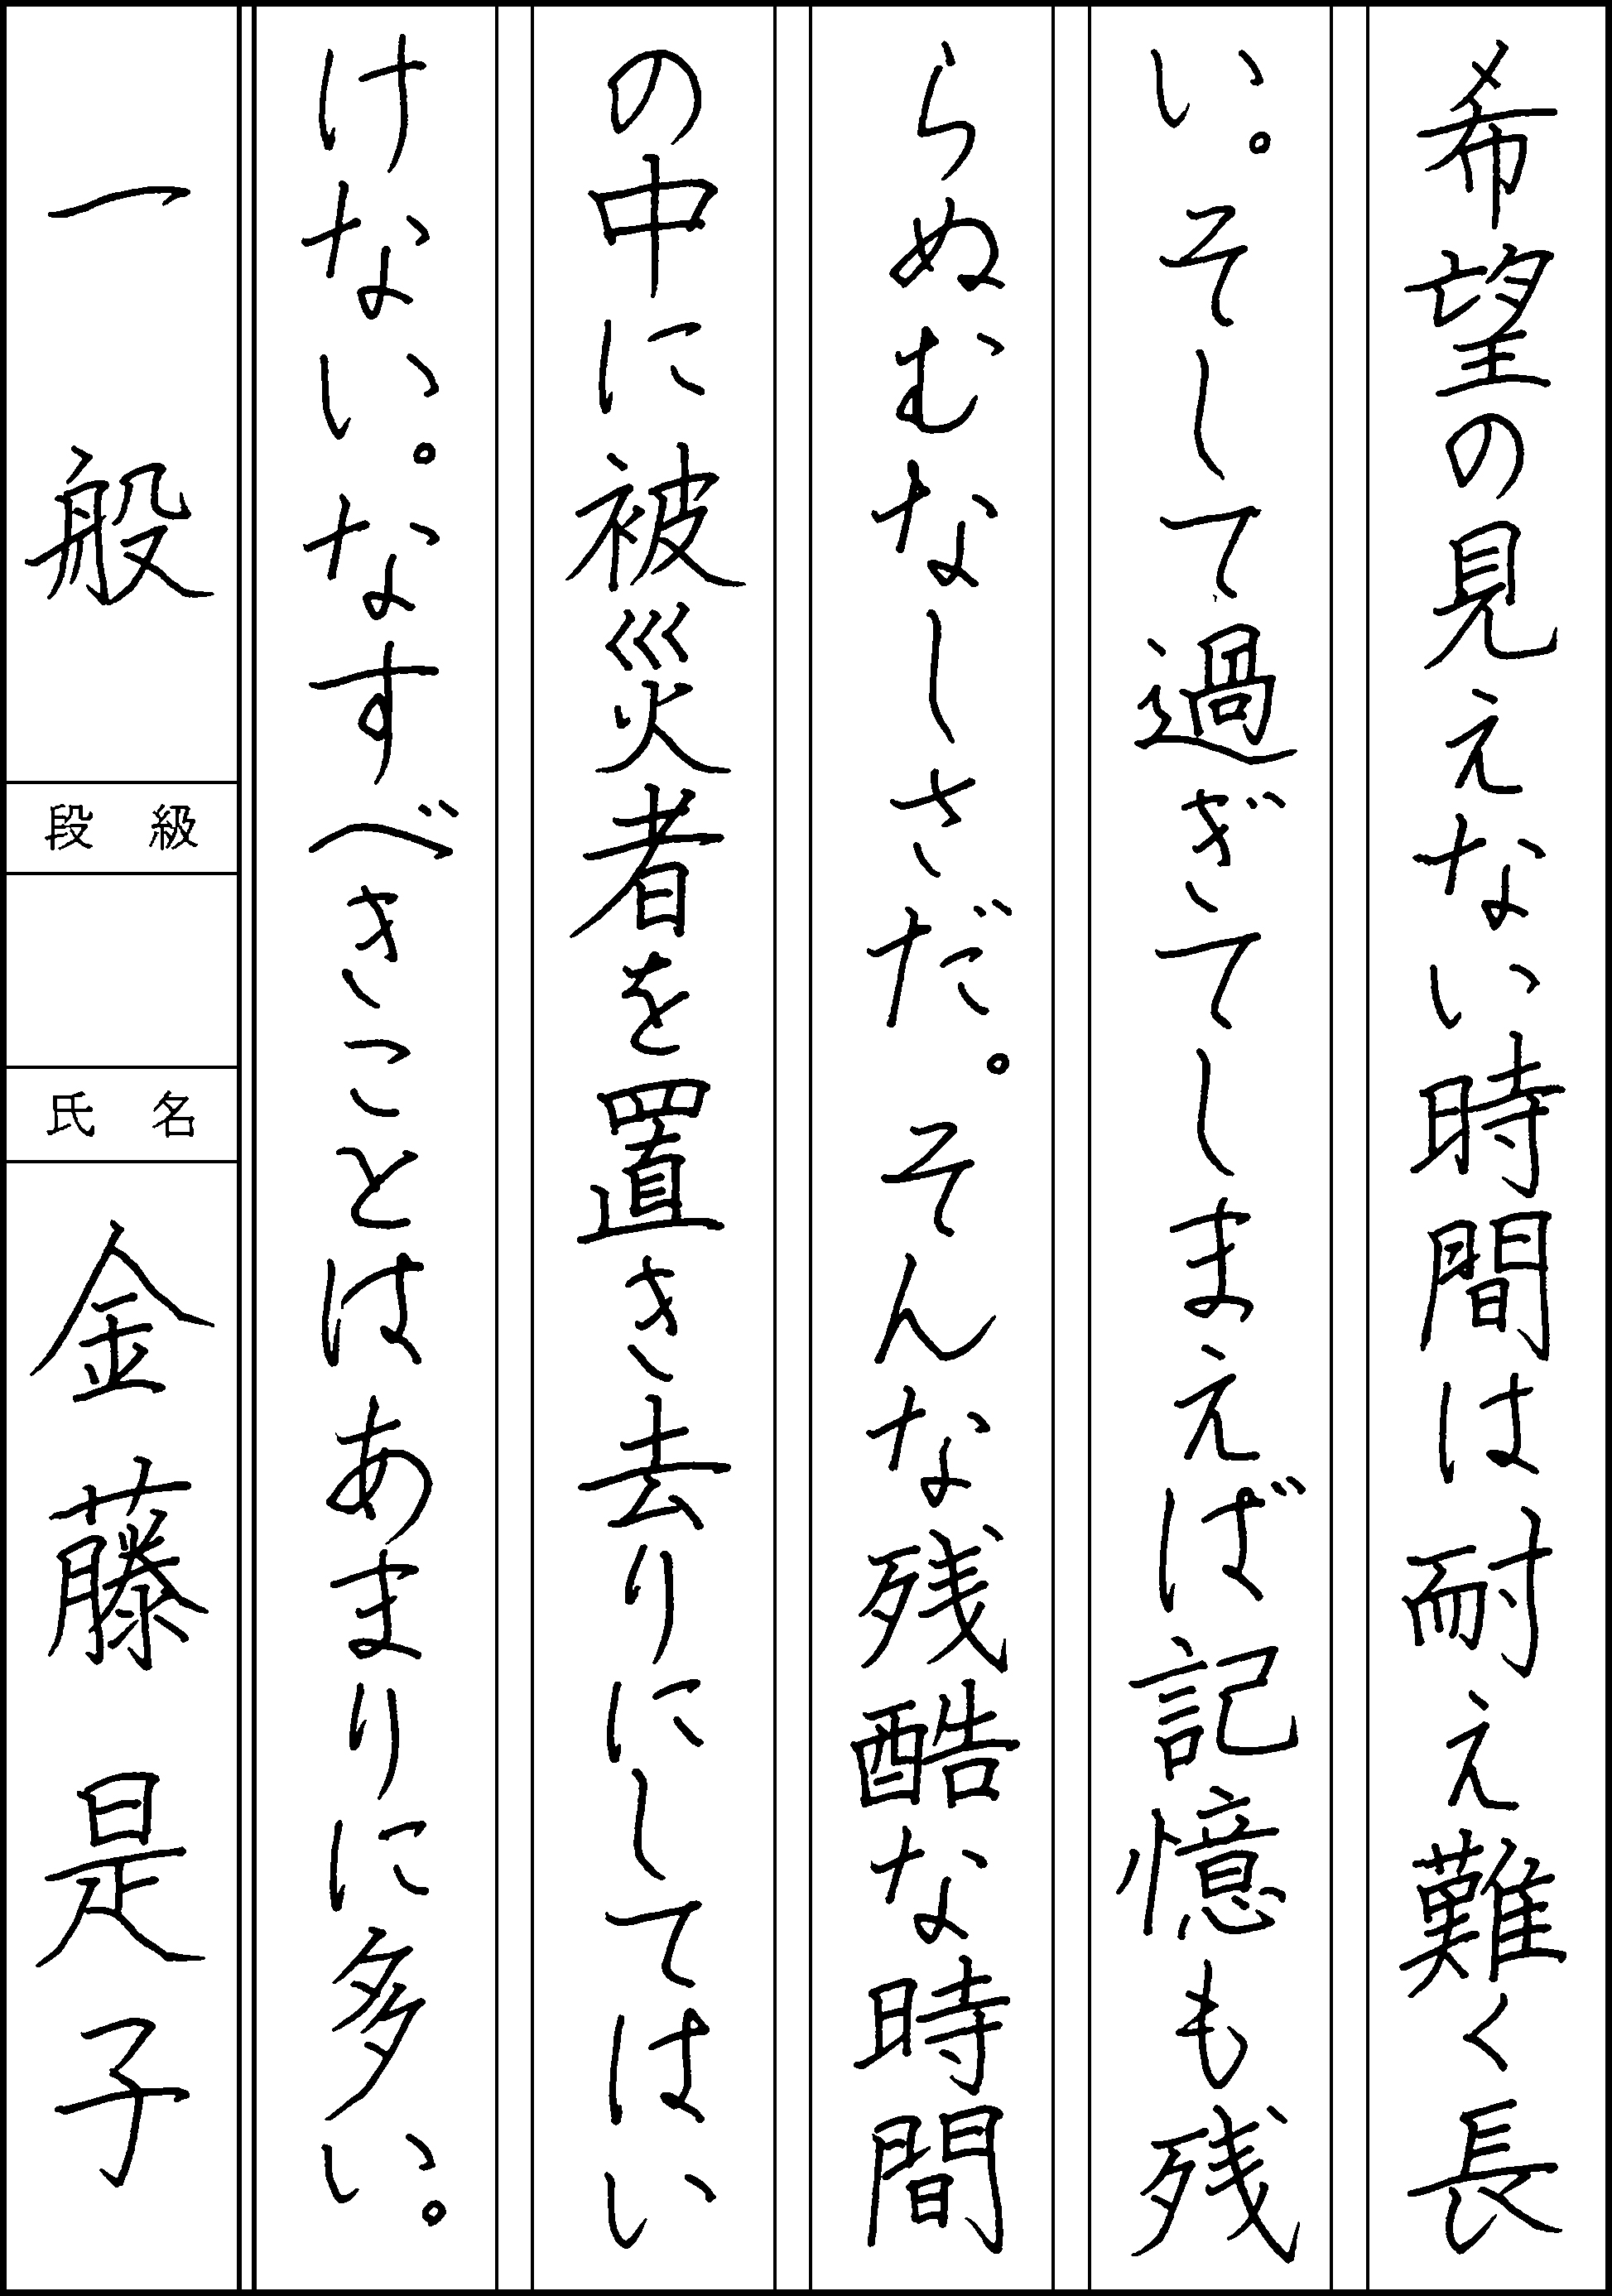 希望の見えない時間は耐え難く長
い。そして過ぎてしまえば記憶も残
らぬむなしさだ。そんな残酷な時間
の中に被災者を置き去りにしてはい
けない。なすべきことはあまりに多い。
一般
段級
氏名
金藤是子